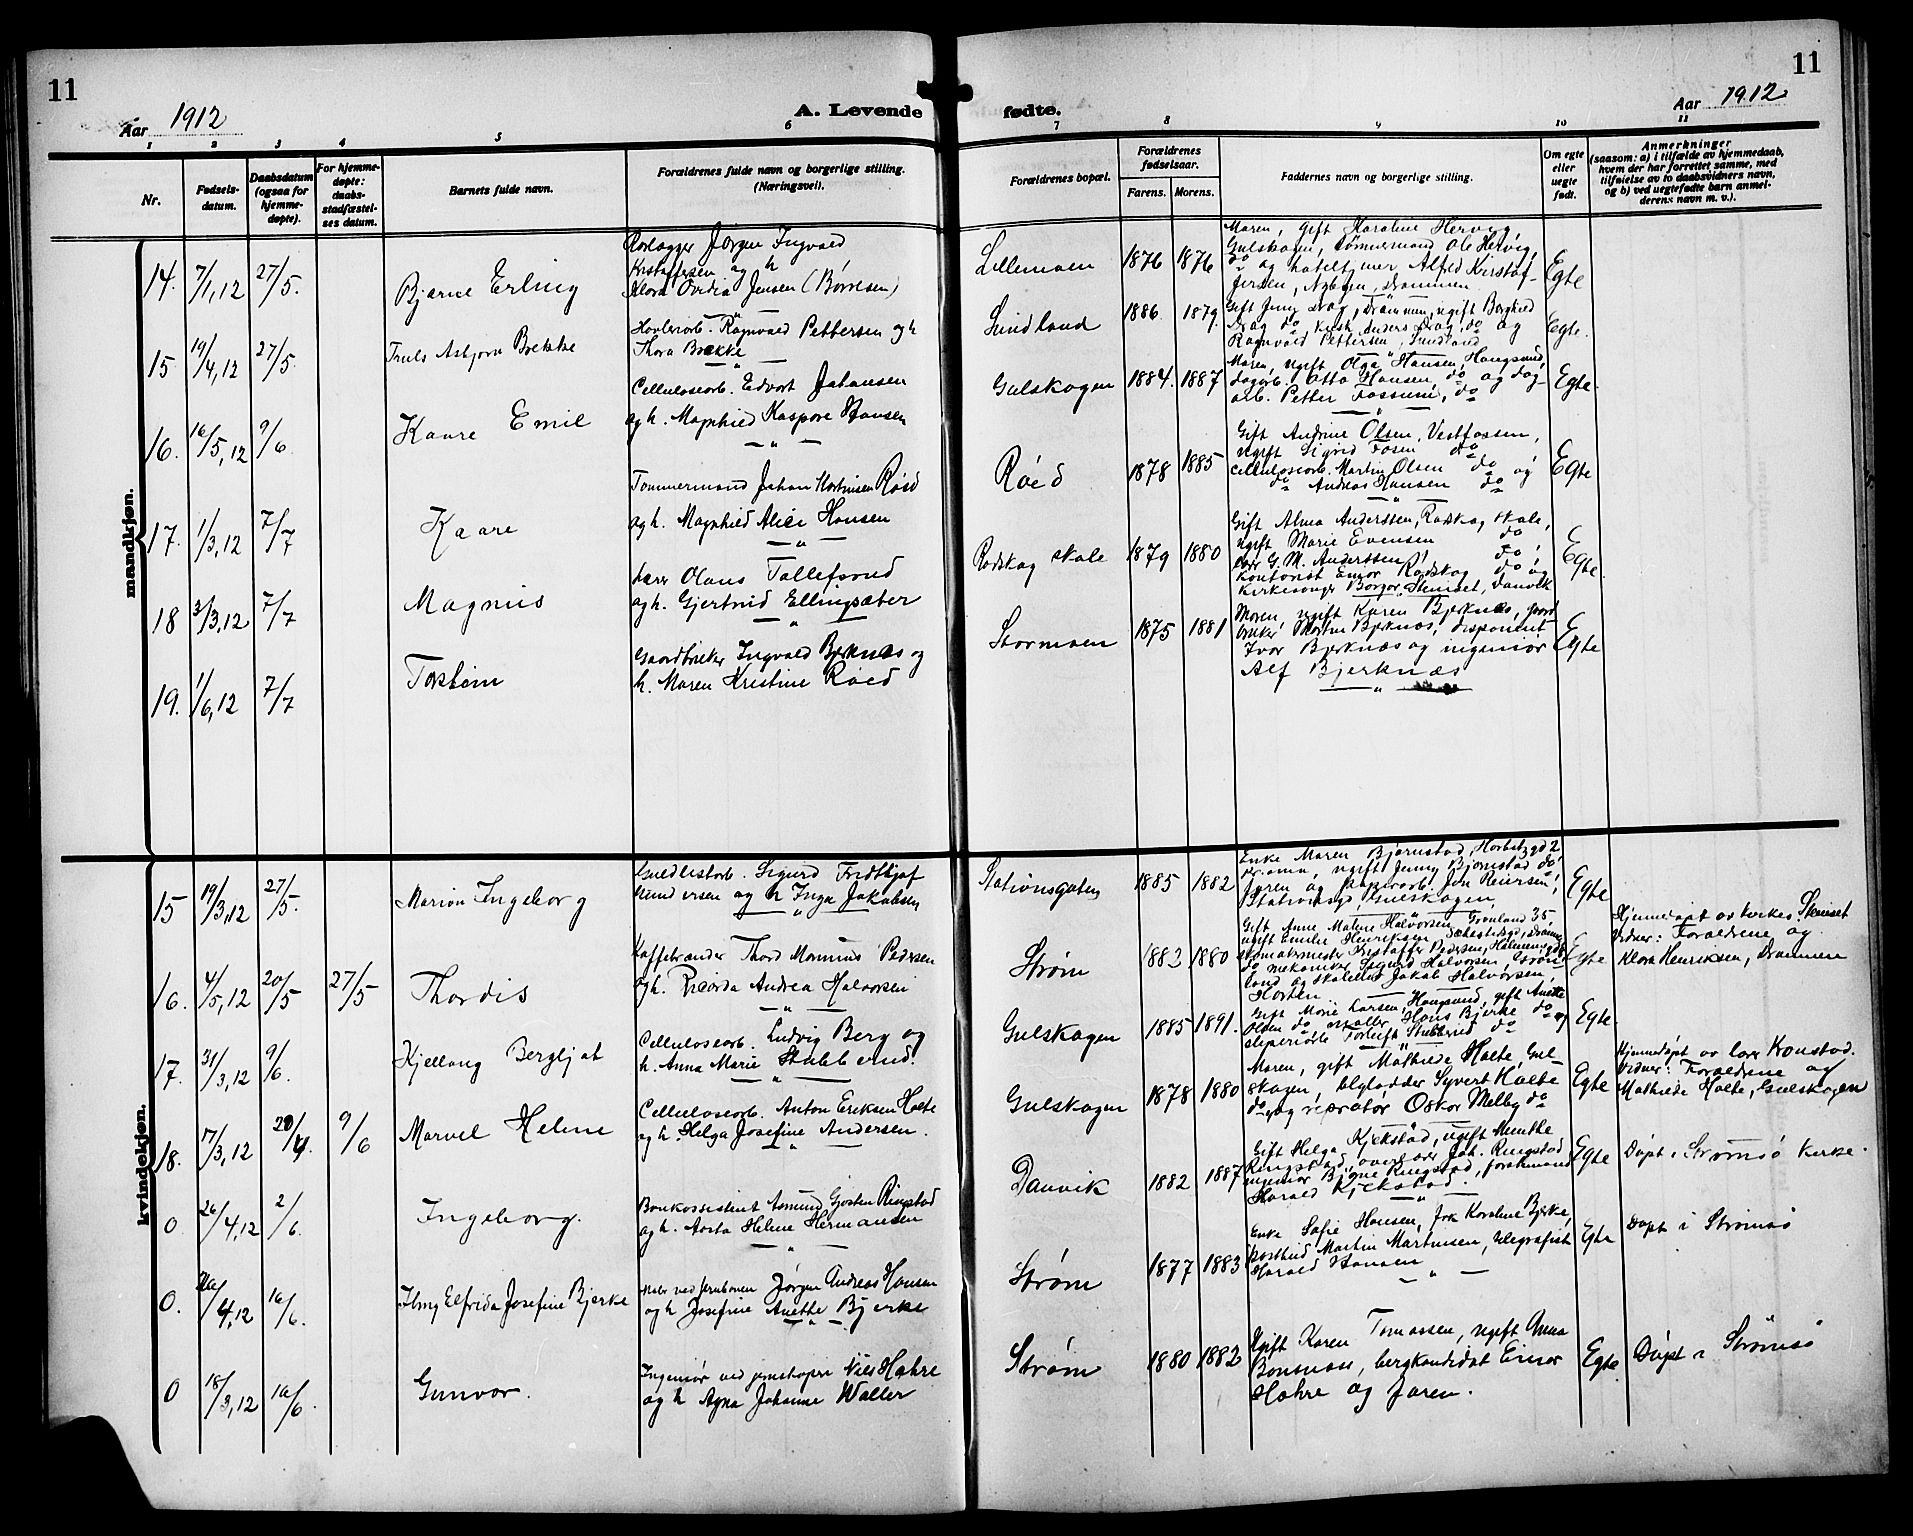 11
Aar 1912
A. Levende
fødte.
11
Aar 1912
1 2 3 4 5 6 7 8 9 10 11
Nr.
Fødsels-
datum.
Daabsdatum
(ogsaa for
hjemme-
døpte).
For hjemme-
døpte:
daabs-
stadfæstel-
ses datum.
Barnets fulde navn.
Forældrenes fulde navn og borgerlige stilling.
(Næringsvei).
Forældrenes bopæl.
Forældrenes
fødselsaar.
Farens. Morens.
Faddernes navn og borgerlige stilling.
Om egte
eller
uegte
født.
Anmerkninger
(saasom: a) i tilfælde av hjemmedaab,
hvem der har forrettet samme, med
tilføielse av to daabsvidners navn,
og b) ved uegtefødte barn anmel-
derens navn m. v.).
mandkjøn.
14. 7/1, 12 27/5. Bjarne Erling
Rørlægger Jørgen Ingvald
Kristoffersen og h
Klara Ovidia Jensen (Børresen)
Lillemoen 1876 1876
Moren, gift Karoline Hervig,
Gulskogen, tømmermand Ole Hervig,
do og hoteltjener Alfred Kristof-
fersen, Nybyen, Drammen.
Egte
15 19/4, 12 27/5. Truls Asbjørn Brekke
Høvleriarb. Ragnvald Pettersen og h
Thora Brekke
Sundland 1886 1879.
Gift Jenny Drag, Drammen, ugift Borghild
Drag do, kusk Anders Drag, do og
Ragnvald Pettersen, Sundland
Egte.
16. 16/5, 12 9/6 Kaare Emil
Celluloseorb. Edvart Johansen
og h. Magnhild Kaspore Hansen
Gulskogen 1884. 1887
Moren, ugift Olga Hansen, Hougsund,
dagarb. Otto Hansen, do og dag-
arb. Petter Fossum, do
Egte.
17. 1/3, 12 7/7 Kaare
Tømmermand Johan Martinsen Røed
og h. Magnhild Alice Hansen
Røed 1878 1885
Gift Andrine Olsen, Vestfossen,
ugift Sigrid Fosen do
Celluloseorb. Martin Olsen do og
do Andreas Hansen do
Egte
18 3/3, 12 7/7 Magnus
Lærer Olaus Tollefsrud
og h. Gjertrud Ellingsæter
Rødskog skole 1879 1880
Gift Alma Anderssen, Rødskog skole,
ugift Marie Evensen do
lærer G. M. Anderssen, do,
kontorist Einar Rødskog do og
kirkesanger Borgar Stenset, Danvik
Egte.
19. 1/6, 12 7/7 Torstein
Gaardbruker Ingvald Bjerknæs og
h. Maren Kristine Røed
Stormoen 1875 1881
Moren, ugift Karen Bjerknæs, gaard-
bruker Morten Bjerknæs, disponent
Ivar Bjerknæs og ingeniør
Alf Bjerknæs
Egte
kvindekjøn.
15 19/3, 12 27/5. Marion Ingeborg
Sigurd Fridthjof
Gundersen og h Inga Jakobsen
Stationsgaten 1885 1882
Enke Maren Bjørnstad,
Drammen, ugift Jenny Bjørnstad do,
faren og papirarb. Jon Reiersen,
Stationsg. Gulskogen
Egte
16. 4/5, 12 20/5 27/5 Thordis
Kaffebrænder Thord Pedersen
og h. Ricorda Andrea Halvorsen
Strøm 1883 1880
Gift Anne Malene Halvorsen, Grønland 35
ugift Emilie Henriksen
skomakermester Kristoffer Pedersen,
do mekaniker Sigurd Halvorsen, Strøm
land og skalelev Jakob Halvorsen,
Horten
Egte
Hjemmedøpt av kirkes. Stenset
Vidner: Forældrene og
Klara Henriksen, Drammen
17. 31/3, 12 9/6. Kjellaug Bergljot
Celluloseorb. Ludvig Berg og
h. Anna Marie Stubberud.
Gulskogen 1885 1891.
Gift Marie Larsen, Hougsund, gift Anette
Olsen do, møller Hans Bjerke do og
sliperiarb. Torleif Stubberud do
Egte
18. 7/3, 12 29/4. 9/6 Marvel Helene
Celluloseorb. Anton Eriksen Holte
og h. Helga Josefine Andersen.
Gulskogen 1878 1880
Moren, gift Mathilde Holte, Gul-
skogen, Syvert Holte
do og reparatør Oskar Melby do
Egte
Hjemmedøpt av lærer Kronstad.
Vidner: Forældrene og
Mathilde Holte, Gulskogen
0 26/4, 12 2/6 Ingeborg.
Bankassistent Asmund Gjosten Ringstad
og h. Aasta Helene Hermansen
Danvik 1882 1887
Gift Helga Kjekstad, ugift Menthe
Ringstad, overlærer Joh. Ringstad
ingeniør Bjarne Ringstad, forstmand
Harald Kjekstad.
Egte
Døpt i Strømsø kirke.
0. 4, 12 16/6. Elfrida Josefine Bjerke
Maler ved jernbanen Jørgen Andreas Hansen
og h. Josefine Anethe Bjerke
Strøm 1877 1883
Enke Sofie Hansen, frk Karoline Bjerke,
postbud Martin Martinsen, telegrafist
Harald Hansen
Egte
Døpt i Strømsø
0 18/3, 12 16/6. Gunvor.
Ingeniør ved Nils Hæhre
og h Agna Johanne Waller
Strøm 1880 1882
Ugift Karen Tomassen, ugift Anna
bergkandidat Einar
Hæhre og faren.
Egte
Døpt i Strømsø